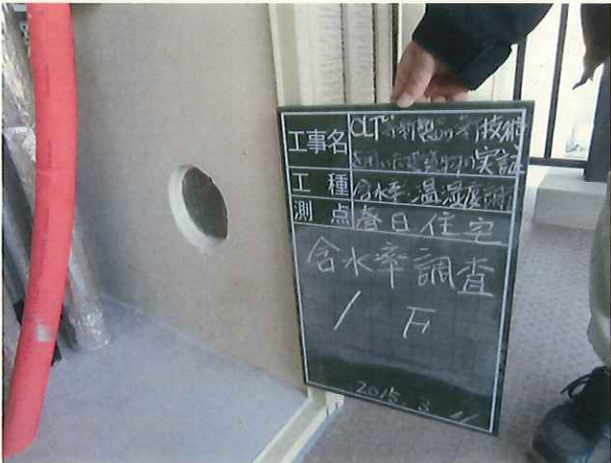 工事名 CLT等新製品・新技術
を用いた建築物の実証
工種 含水率・温湿度計測
測点 春日住宅
含水率調査
1F
2015. 3. 11